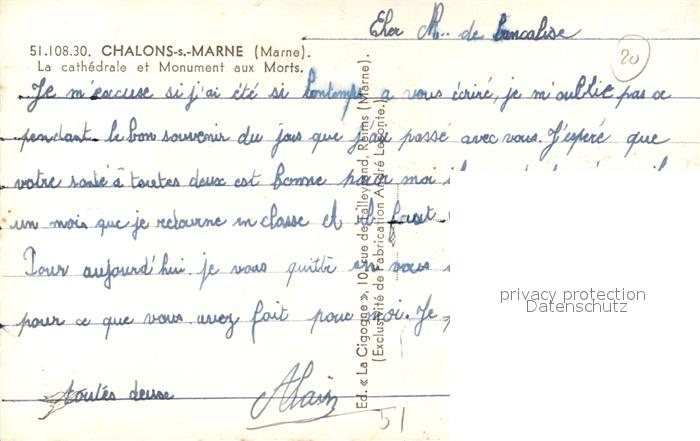 Cher M.. de Bancalise
20
51.108.30. CHALONS-s.-MARNE (Marne).
La cathédrale et Monument aux Morts.
Je m'excuse si j'ai été si lontemps a vous écriré, je m'oublie pas ce
pendant le bon souvenir du jour que j'ai passé avec vous. J'esperé que
votre santé à toutes deux est bonne pour moi
un mois que je retourne en classe et il faut
Pour aujourd'hui je vous quitte en vous
pour ce que vous avez fait pour moi. Je
toutes deuse
Alain
51
Ed. « La Cigogne », 10, rue de Talleyrand, Reims (Marne).
(Exclusivité de Fabrication André Leconte.)
privacy protection
Datenschutz